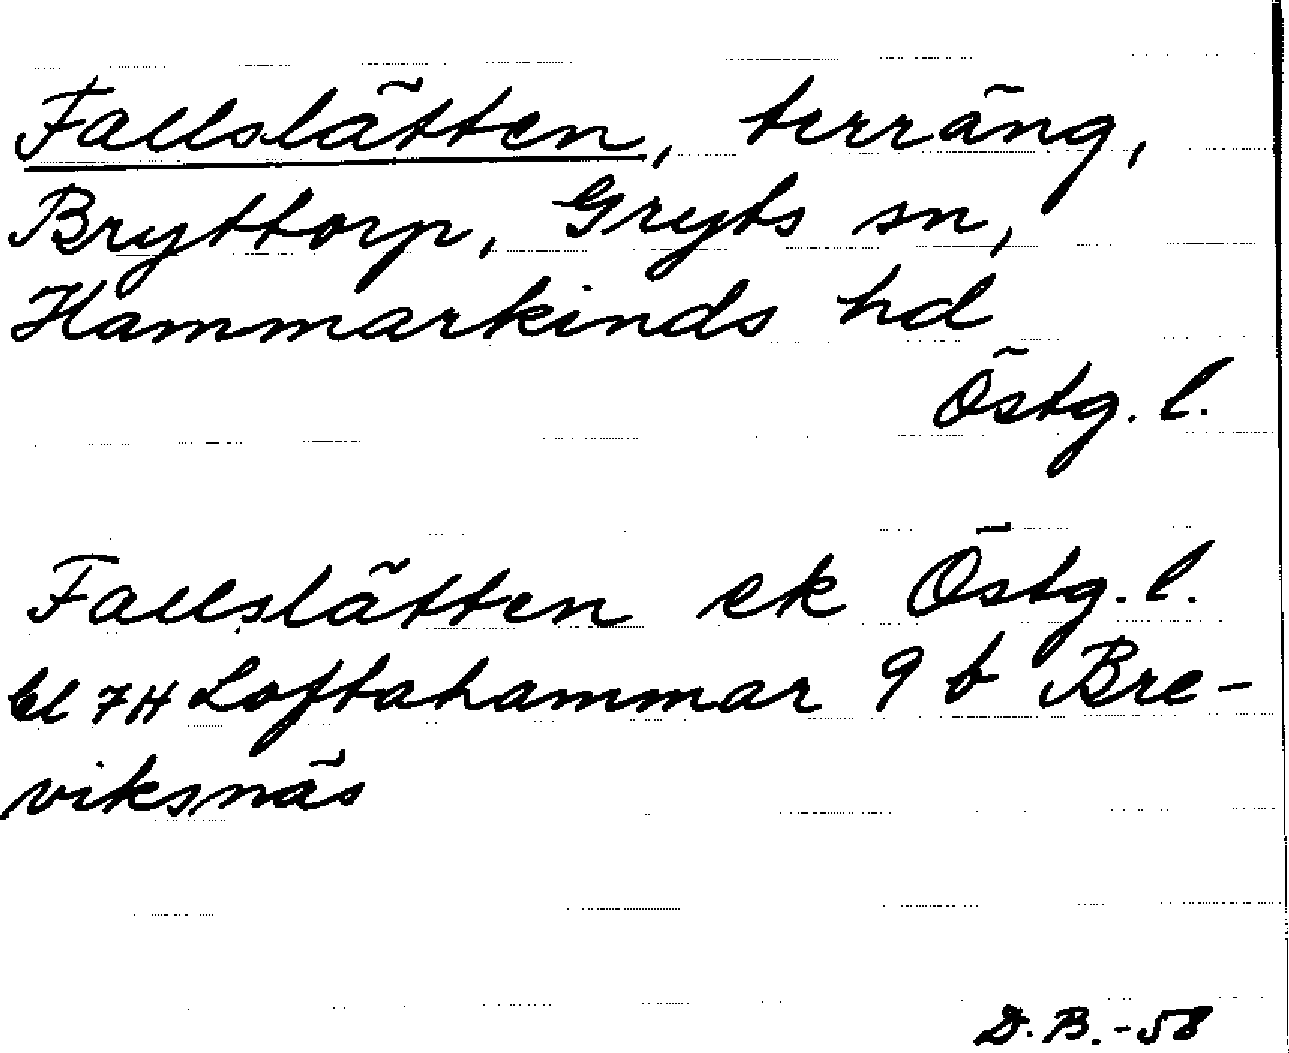 Fallslätten, terräng,
Bryttorp, Gryts sn,
Hammarkinds hd
Östg. l.
Fallslätten ek Östg. l.
bl 7H Loftahammar 9 b Bre-
viksnäs
D.B. -58